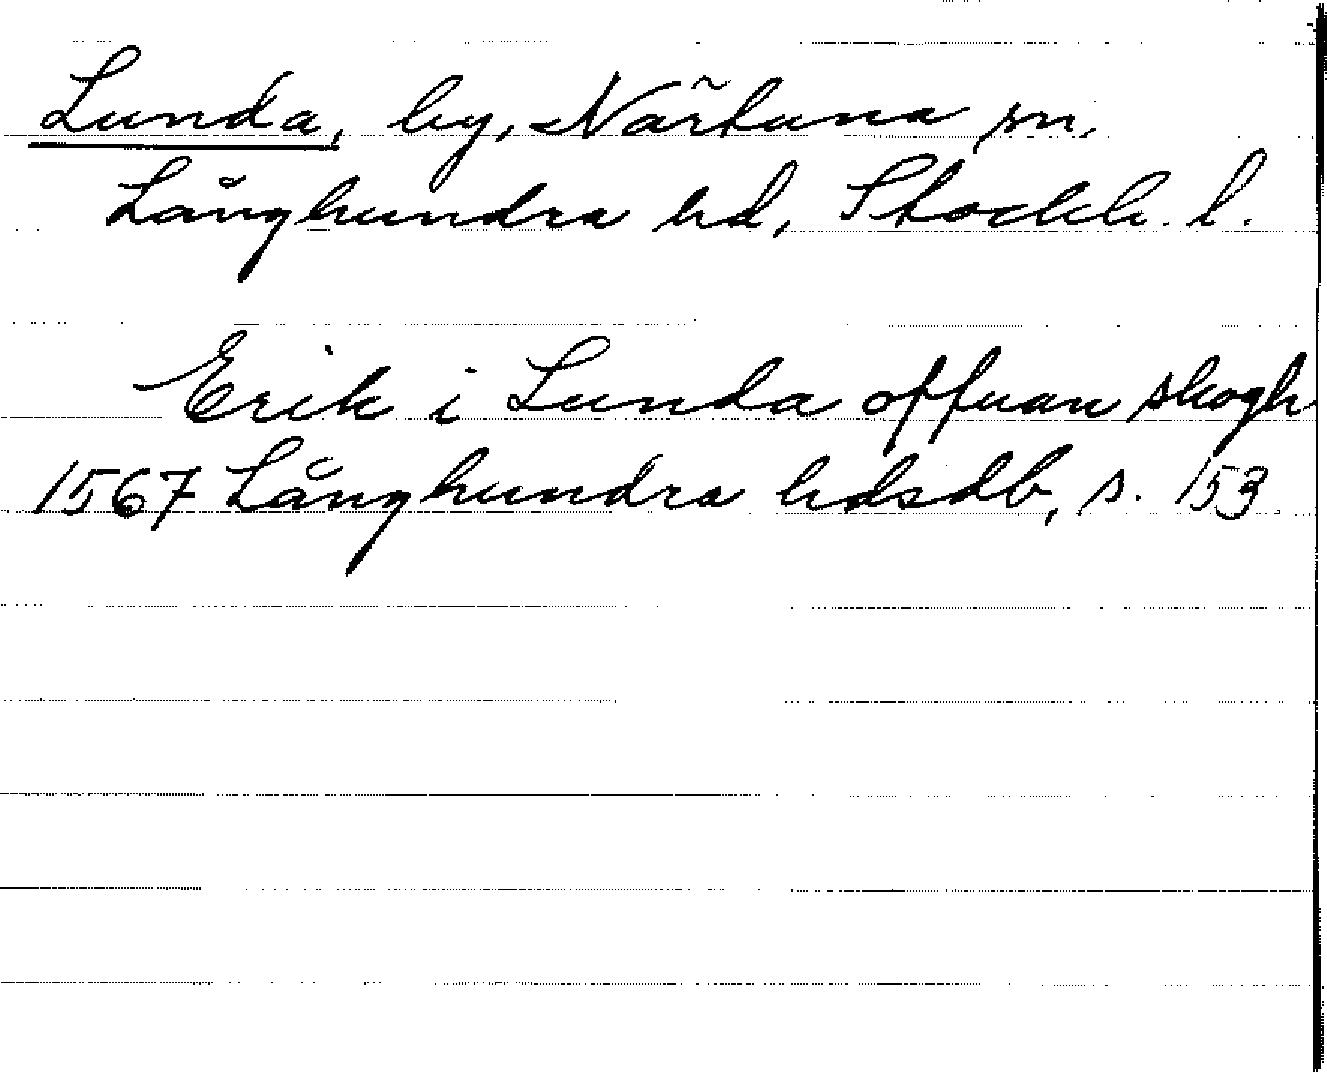 Lunda, by, Närtuna sn,
Långhundra hd, Stockh. l.
Erik i Lunda offuan skogh
1567 Långhundra hdsdb, s. 153.